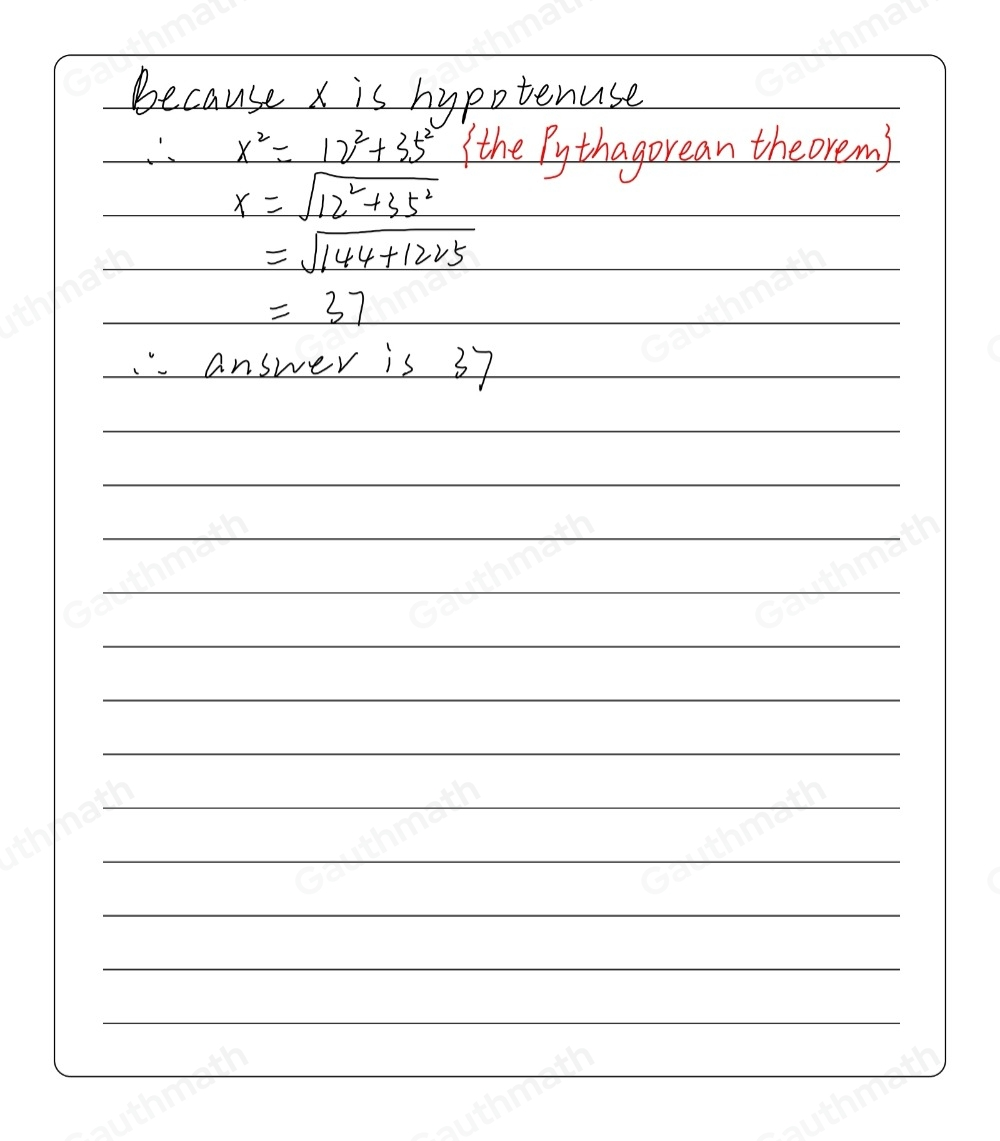 Because x is hypotenuse
∴ x² = 12² + 35² {the Pythagorean theorem}
x = √12² + 35²
= √144 + 1225
= 37
∴ answer is 37
Gauthmath